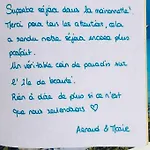 Superbe séjour dans la maisonnette!
Merci pour tes les attentions, cela
a rendu notre séjour encore plus
parfait.
Un véritable coin de paradis sur
l'île de beauté.
Rien à dire de plus si ce n'est
que nous reviendrons ♡
Arnaud & Marie